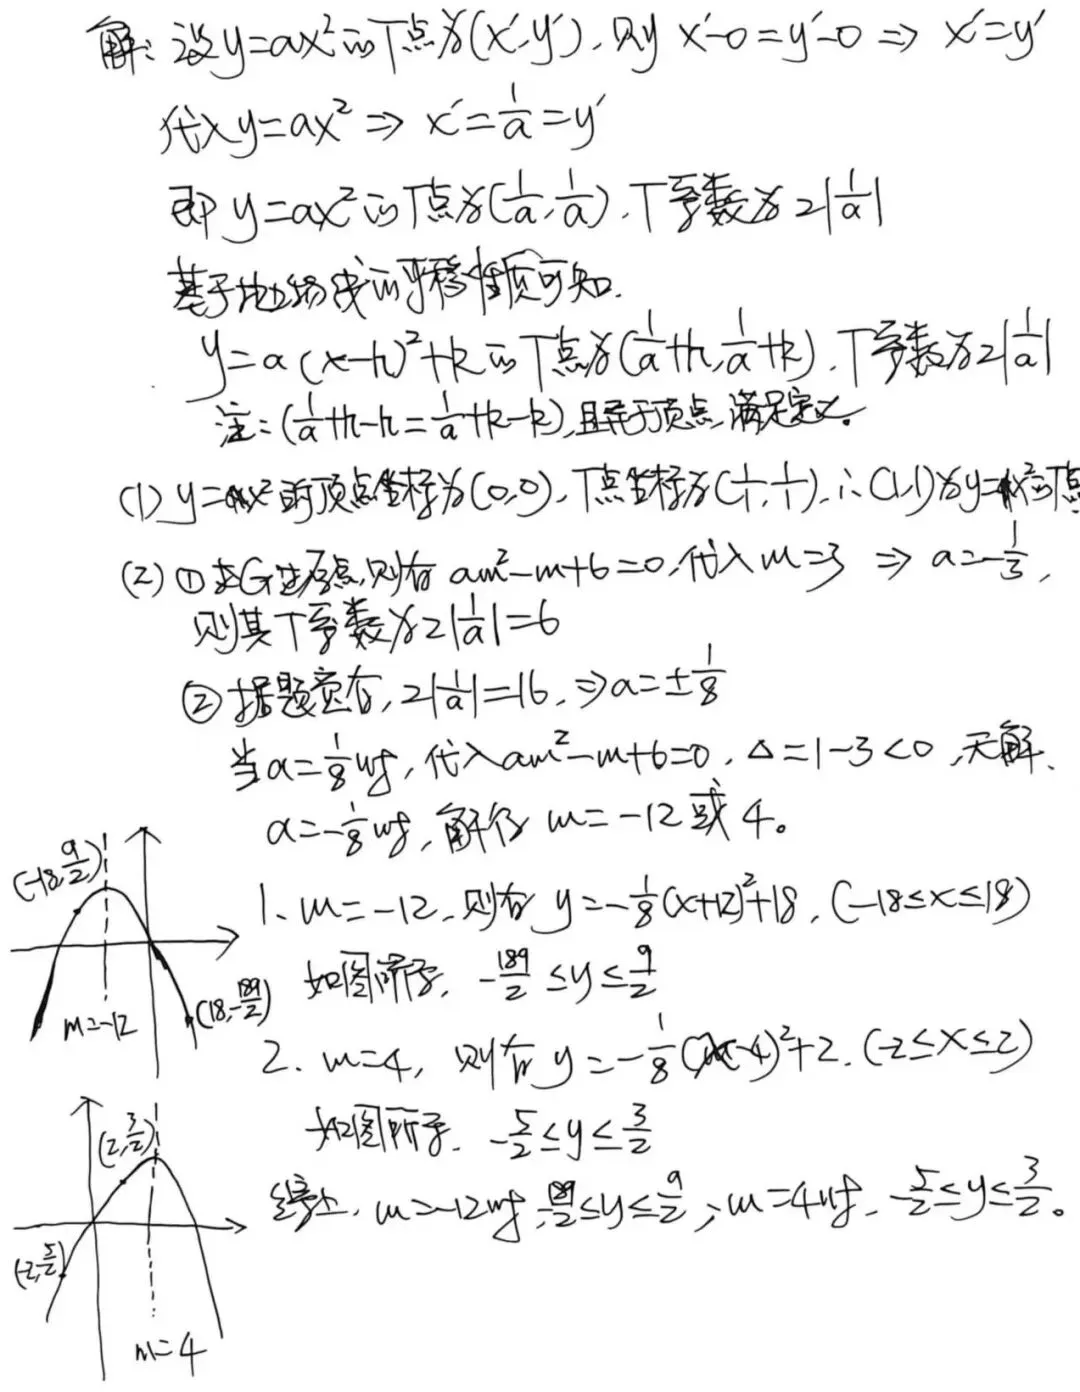 解:设y=ax²的T点为(x',y'),则y x'-0=y'-0 ⇒ x'=y'
代入y=ax² ⇒ x'=1/a=y'
即y=ax²的T点为(1/a,1/a),T系数为2|1/a|
基于抛物线的平移性质可知.
y=a(x-h)²+k的T点为(1/a+h,1/a+k),T系数为2|1/a|
注:(1/a+h-h=1/a+k-k),且异于顶点,满足定义。
(1) y=x²的顶点坐标为(0,0),T点坐标为(1/1,1/1),∴(1,1)为y=x²的T点
(2) ①若G过原点,则有am²-m+6=0,代入m=3 ⇒ a=-1/3,
则其T系数为2|1/a|=6
②据题意有,2|1/a|=16,⇒a=±1/8
当a=1/8时,代入am²-m+6=0,Δ=1-3<0,无解.
a=-1/8时,解得m=-12或4。
1、m=-12,则有y=-1/8(x+12)²+18,(-18≤x≤18)
如图所示,-189/2≤y≤9/2
2.m=4,则有y=-1/8(x-4)²+2.(-2≤x≤2)
如图所示.-5/2≤y≤3/2
综上,m=-12时,-189/2≤y≤9/2;m=4时,-5/2≤y≤3/2。
(-18,9/2)
(18,-189/2)
m=-12
(2,3/2)
(-2,-5/2)
m=4